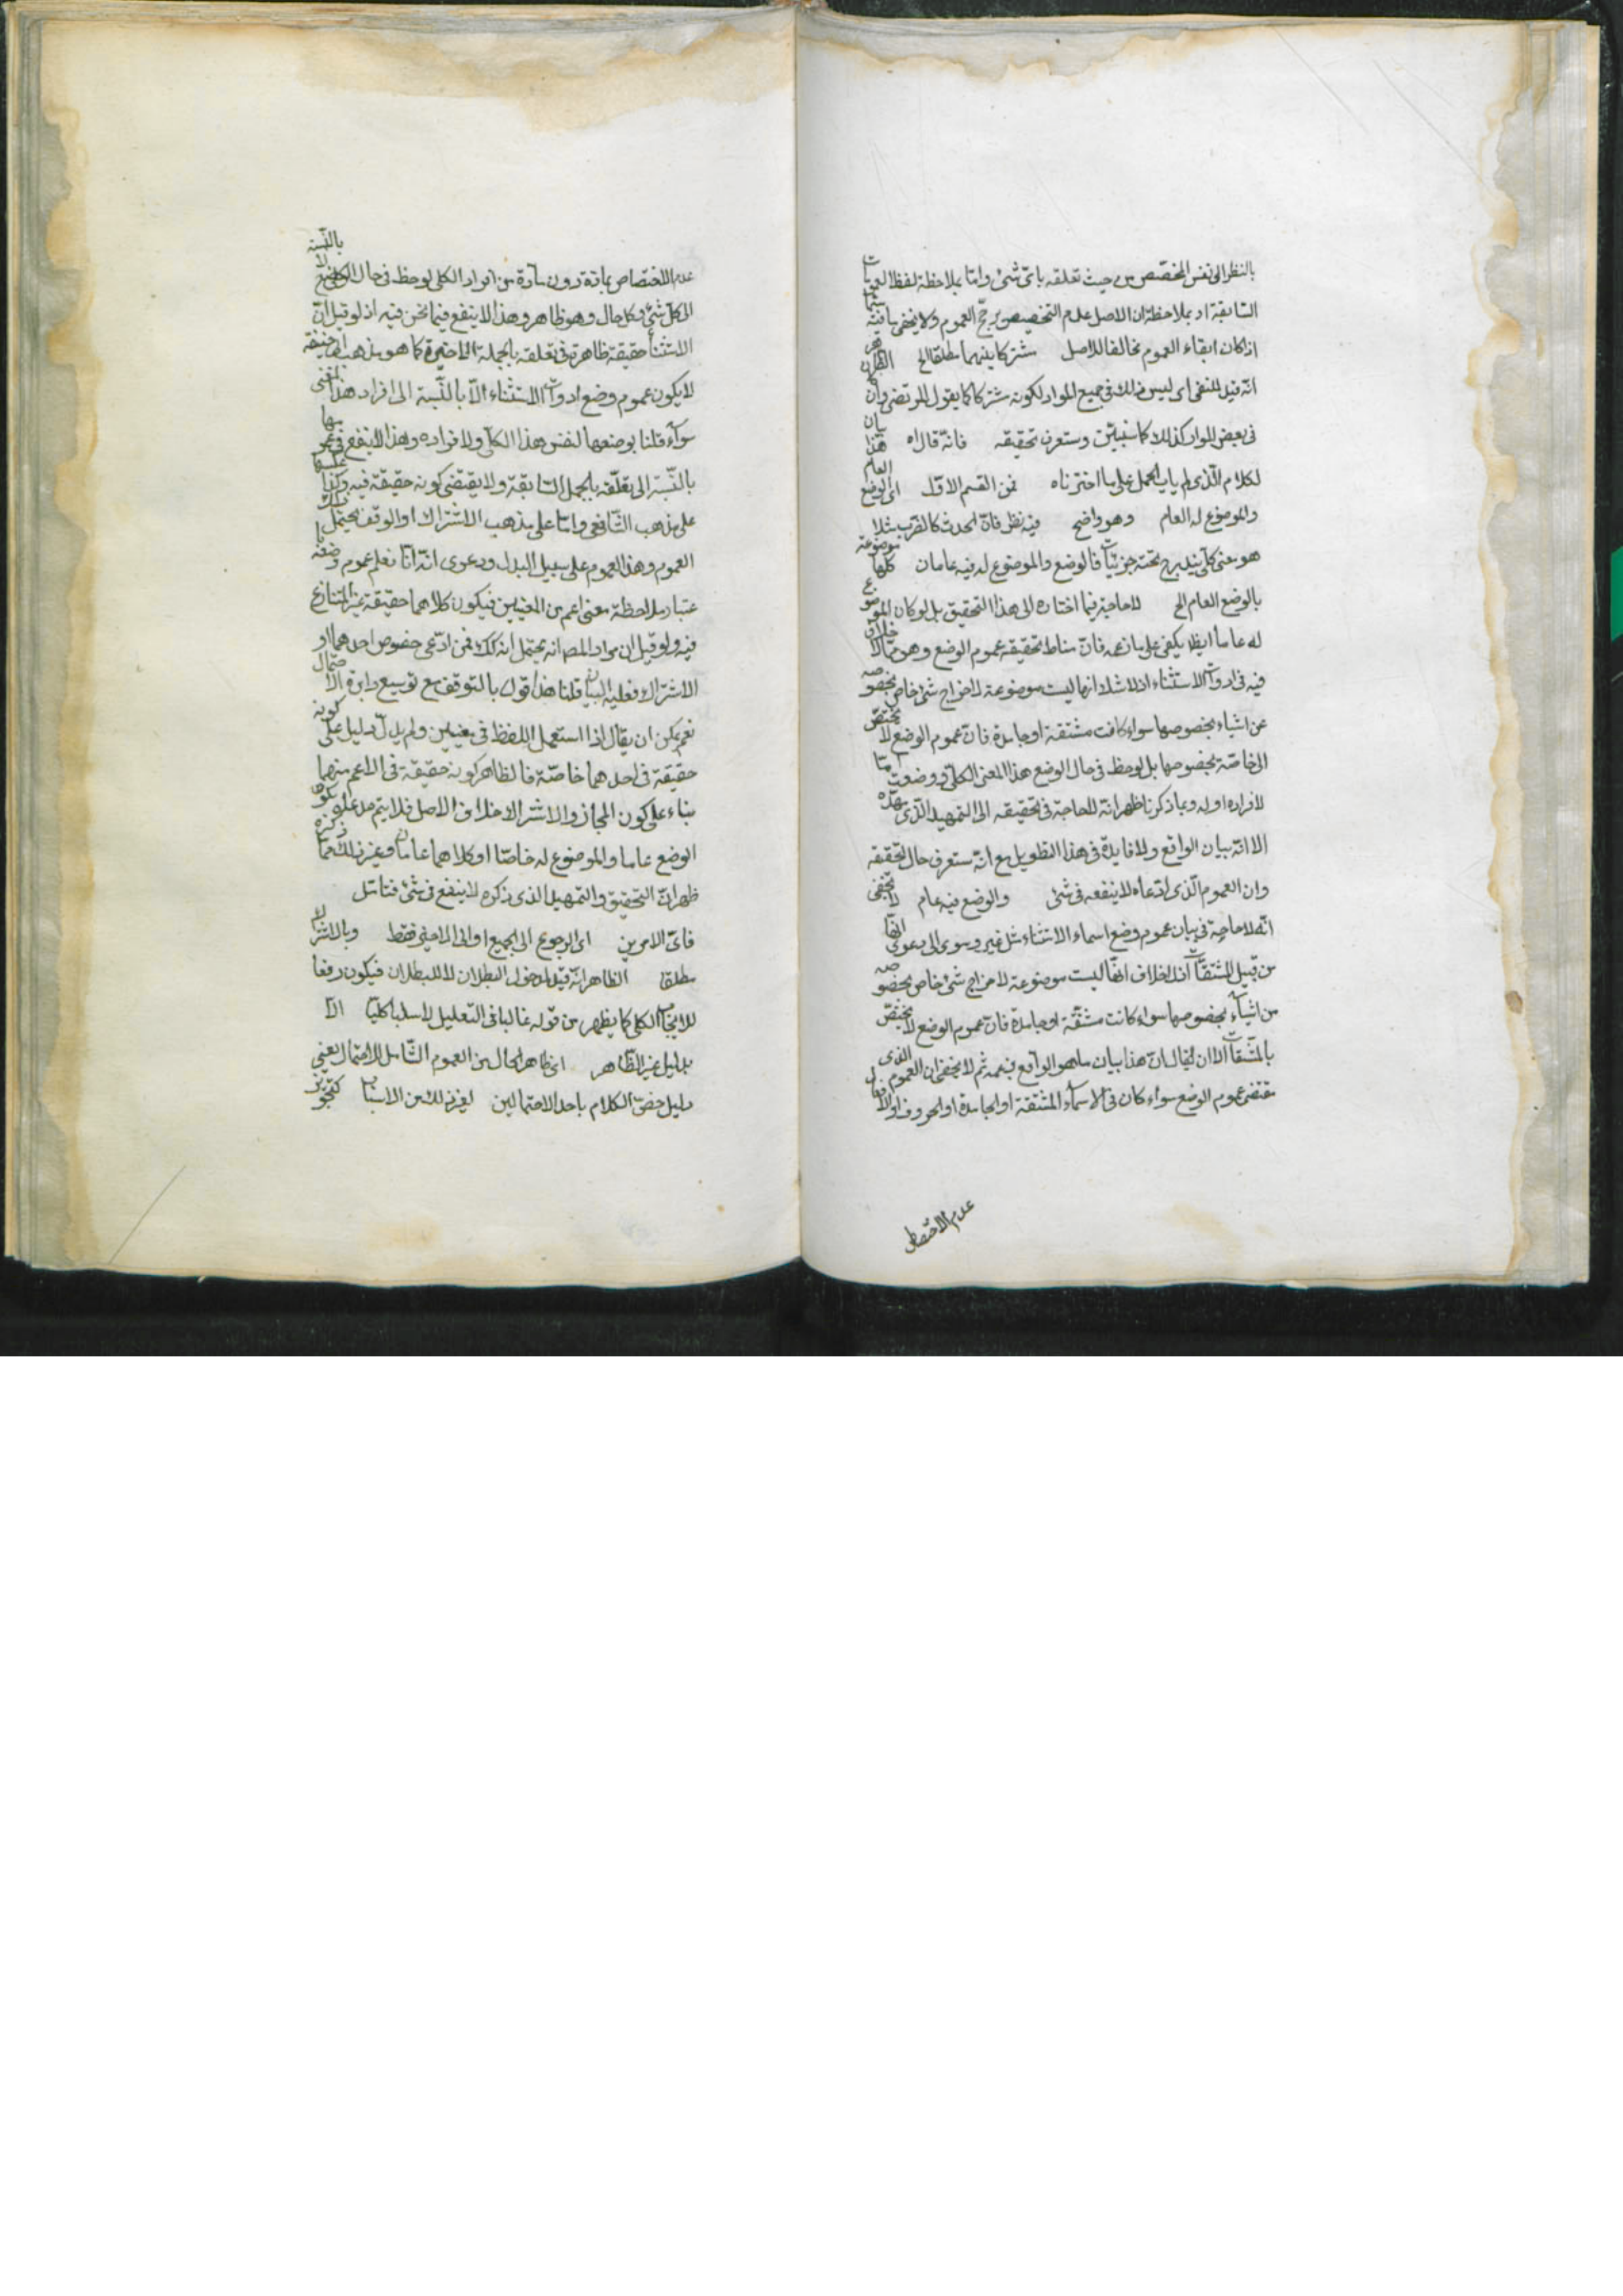 بالنظر الى نفس المخصص من حيث تعلقه باى شئ واما بملاحظة لفظ العمومات
السابقة او بملاحظة ان الاصل عدم التخصيص يرجح العموم ولا يخفى ما فيه سيما
اذا كان ابقاء العموم مخالفا للاصل مشتركا بينهما مطلقا الخ الظاهر
انه قيد للمنفى اى ليس ذلك فى جميع المواد لكونه مشتركا كما يقول المرتضى وان كان
فى بعض المواد كذلك كما سنبين وستعرف تحقيقه فانه قال اه هذا
الكلام الذى لم ياب الحمل على ما اخترناه فمن القسم الاول اى الوضع العام
والموضوع له العام وهو واضح فيه نظر فان الحدث كالضرب مثلا
هو معنى كلى يندرج تحته جزئيات فالوضع والموضوع له فيه عامان كلها موضوعة
بالوضع العام الخ لا حاجة فيما اختاره الى هذا التحقيق بل لو كان الموضوع
له عاما ايضا يكفى على ما زعمه فان مناط تحقيقه عموم الوضع وهو مما لا خلاف
فيه فى ادوات الاستثناء اذ لا شك انها ليست موضوعة لاخراج شئ خاص بخصوصه
عن اشياء بخصوصها سواء كانت مشتقة او جامدة فان عموم الوضع لا يختص
الى خاصة بخصوصها بل لوحظ فى حال الوضع هذا المعنى الكلى ووضعت اما
لافراده او له وبما ذكرنا ظهر انه لا حاجة فى تحقيقه الى التمهيد الذى مهده
الا انه بيان الواقع ولا فايدة فى هذا التطويل مع انه ستعرف حال تحقيقه
وان العموم الذى ادعاه لا ينفعه فى شئ والوضع فيه عام لا يخفى
انه لا حاجة فى بيان عموم وضع اسماء الاستثناء مثل غير وسوى الى دعوى انها
من قبيل المشتقات اذ لا خلاف انها ليست موضوعة لاخراج شئ خاص بخصوصه
من اشياء بخصوصها سواء كانت مشتقة او جامدة فان عموم الوضع لا يختص
بالمشتقات الا ان يقال ان هذا بيان ما هو الواقع بزعمه ثم لا يخفى ان العموم الذى
يقتضى عموم الوضع سواء كان فى الاسماء المشتقة او الجامدة او الحروف او الافعال
عدم الاختصاص
عدم الاختصاص بمادة دون مادة من افراد الكلى لوحظ فى حال الوضع لا بالنسبة
الى كل شئ وكل حال وهو ظاهر وهذا لا ينفع فيما نحن فيه اذ لو قيل ان
الاستثناء حقيقة ظاهرة فى تعلقه بالجملة الاخيرة كما هو مذهب ابى حنيفة
لا يكون عموم وضع ادوات الاستثناء الا بالنسبة الى افراد هذا المعنى
سواء قلنا بوضعها لنفس هذا الكلى ولافراده وهذا لا ينفع فى عمومها
بالنسبة الى تعلقه بالجمل السابقة ولا يقتضى كونه حقيقة فيه وكذا عليها
على مذهب الشافعى واما على مذهب الاشتراك او الوقف يحتمل ذلك
العموم وهذا العموم على سبيل البدل ودعوى انه انا نعلم عموم وضعه با
عتبار ملاحظة معنى اعم من المعنيين فيكون كلاهما حقيقة عين المتنازع
فيه ولو قيل ان مراد المص انه يحتمل انه كك فمن ادعى خصوص احدهما او
الاشتراك فعليه البيان قلنا هذا قول بالتوقف مع توسيع دايرة الاحتمال
نعم يمكن ان يقال اذا استعمل اللفظ فى معنيين ولم يدل دليل على كونه
حقيقة فى احدهما خاصة فالظاهر كونه حقيقة فى الاعم منهما
بناء على كون المجاز والاشتراك خلاف الاصل فلا يتم مدعاه بكون
الوضع عاما والموضوع له خاصا او كلاهما عامان وغير ذلك مما ذكره
ظهر ان التحقيق والتمهيد الذى ذكره لا ينفع فى شئ فتامل
فاى الامرين اى الرجوع الى الجميع او الى الاخير فقط وبالاشتراك
مطلقا الظاهر انه قيد لدخول البطلان لا للبطلان فيكون رفعا
للايجاب الكلى كما يظهر من قوله غالبا فى التعليل لا سلبا كليا الا
بدليل غير الظاهر اى ظاهر الحال من العموم الشامل للاحتمال يعنى
دليل خص الكلام باحد الاحتمالين لغير ذلك من الاسباب كتجويز